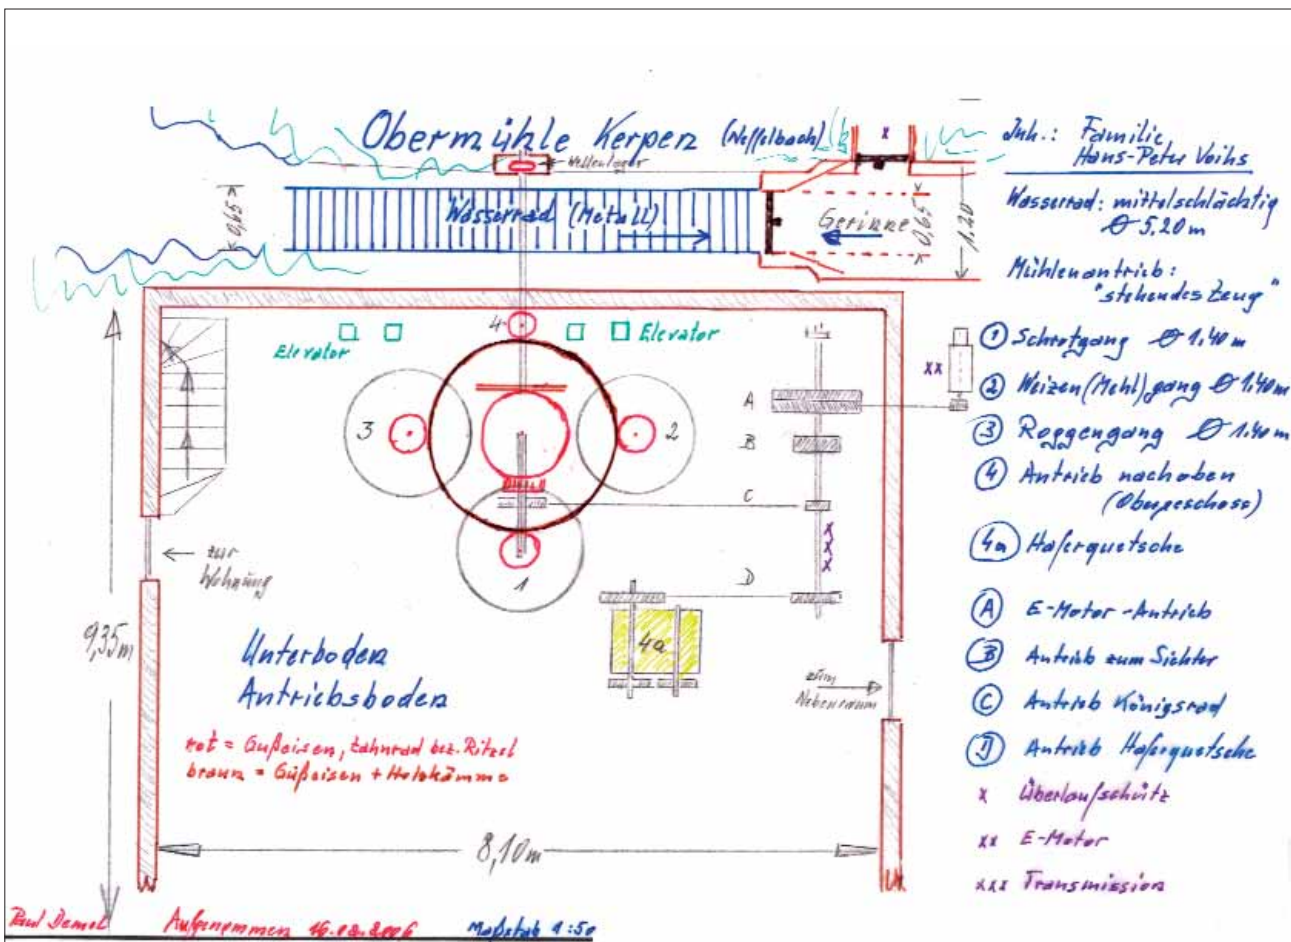 Obermühle Kerpen (Neffelbach)
Wellenlager
x
Wasserrad (Metall)
0,65
Gerinne
0,65
1,20
Inh.: Familie
Hans-Peter Voihs
Wasserrad: mittelschlächtig
Ø 5,20 m
Mühlenantrieb:
"stehendes Zeug"
1 Schrotgang Ø 1.40 m
2 Weizen(Mehl)gang Ø 1.40m
3 Roggengang Ø 1.40 m
4 Antrieb nach oben
(Obergeschoss)
4a Haferquetsche
A E-Motor-Antrieb
B Antrieb zum Sichter
C Antrieb Königsrad
D Antrieb Haferquetsche
x Überlaufschütz
xx E-Motor
xxx Transmission
4
Elevator
Elevator
3
2
1
A
B
C
D
xx
xxx
4a
zur
Wohnung
zum
Nebenraum
9,35m
Unterboden
Antriebsboden
rot = Gußeisen, Zahnrad bez. Ritzel
braun = Gußeisen + Holzkämme
8,10m
Paul Demel Aufgenommen 16.02.2006 Maßstab 1:50